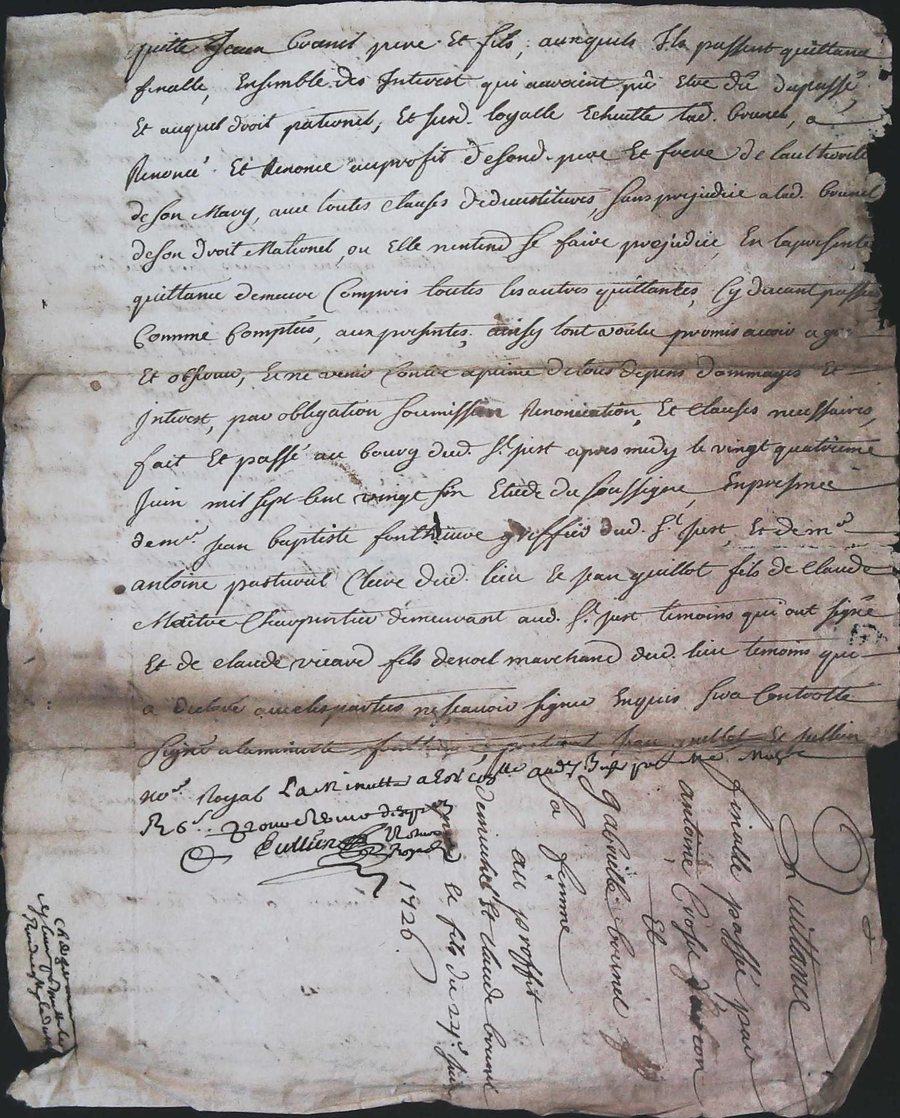 quitte Jean Brunel pere Et fils, auxquels Ils passent quittance
finalle, Ensemble des Interest qui auroint pû Etre dû du passé,
Et auquel droit paternel, Et surd. loyalle Echutte lad. brunel, a
Renoncé Et Renonce au profit de sond. pere Et frere de lauthorité
de son Mary, avec toutes clauses sans prejudice a lad. brunel
de son droit Maternel, ou Elle nentend se faire prejudice, En la presente
quittance demeure Compris toutes les autres quittances, Cy devant passées
Comme Comptés, aux presentes, ainsy tout voulu promis avoir agreé
Et observer, Et ne venir Contre a peine de tous depens dommages Et
Interest, par obligation soumission Renonciation, Et clauses necessaires,
fait Et passé au bourg dud. St. just apres midy le vingt quatrieme
Juin mil sept Cent vingt six Etude du soussigné, En presence
de mre. jean baptiste greffier dud. St. just, Et de mre.
antoine pastural Clerc dud. lieu Et jean guillot fils de Claude
Maitre Charpentier demeurant aud. St. just temoins qui ont signé
Et de claude fils de noel marchand dud. lieu temoins qui
a declaré avec les parties ne scavoir signer Enquis sera Controllé
signé a la minutte jean guillot Et
nore. Royal La Minutte a Esté
Royal
Quittance
finalle passé par
antoine
Et
gabrielle brunel
sa femme
au proffit
Et claude brunel
le fils du 24e. juin
1726